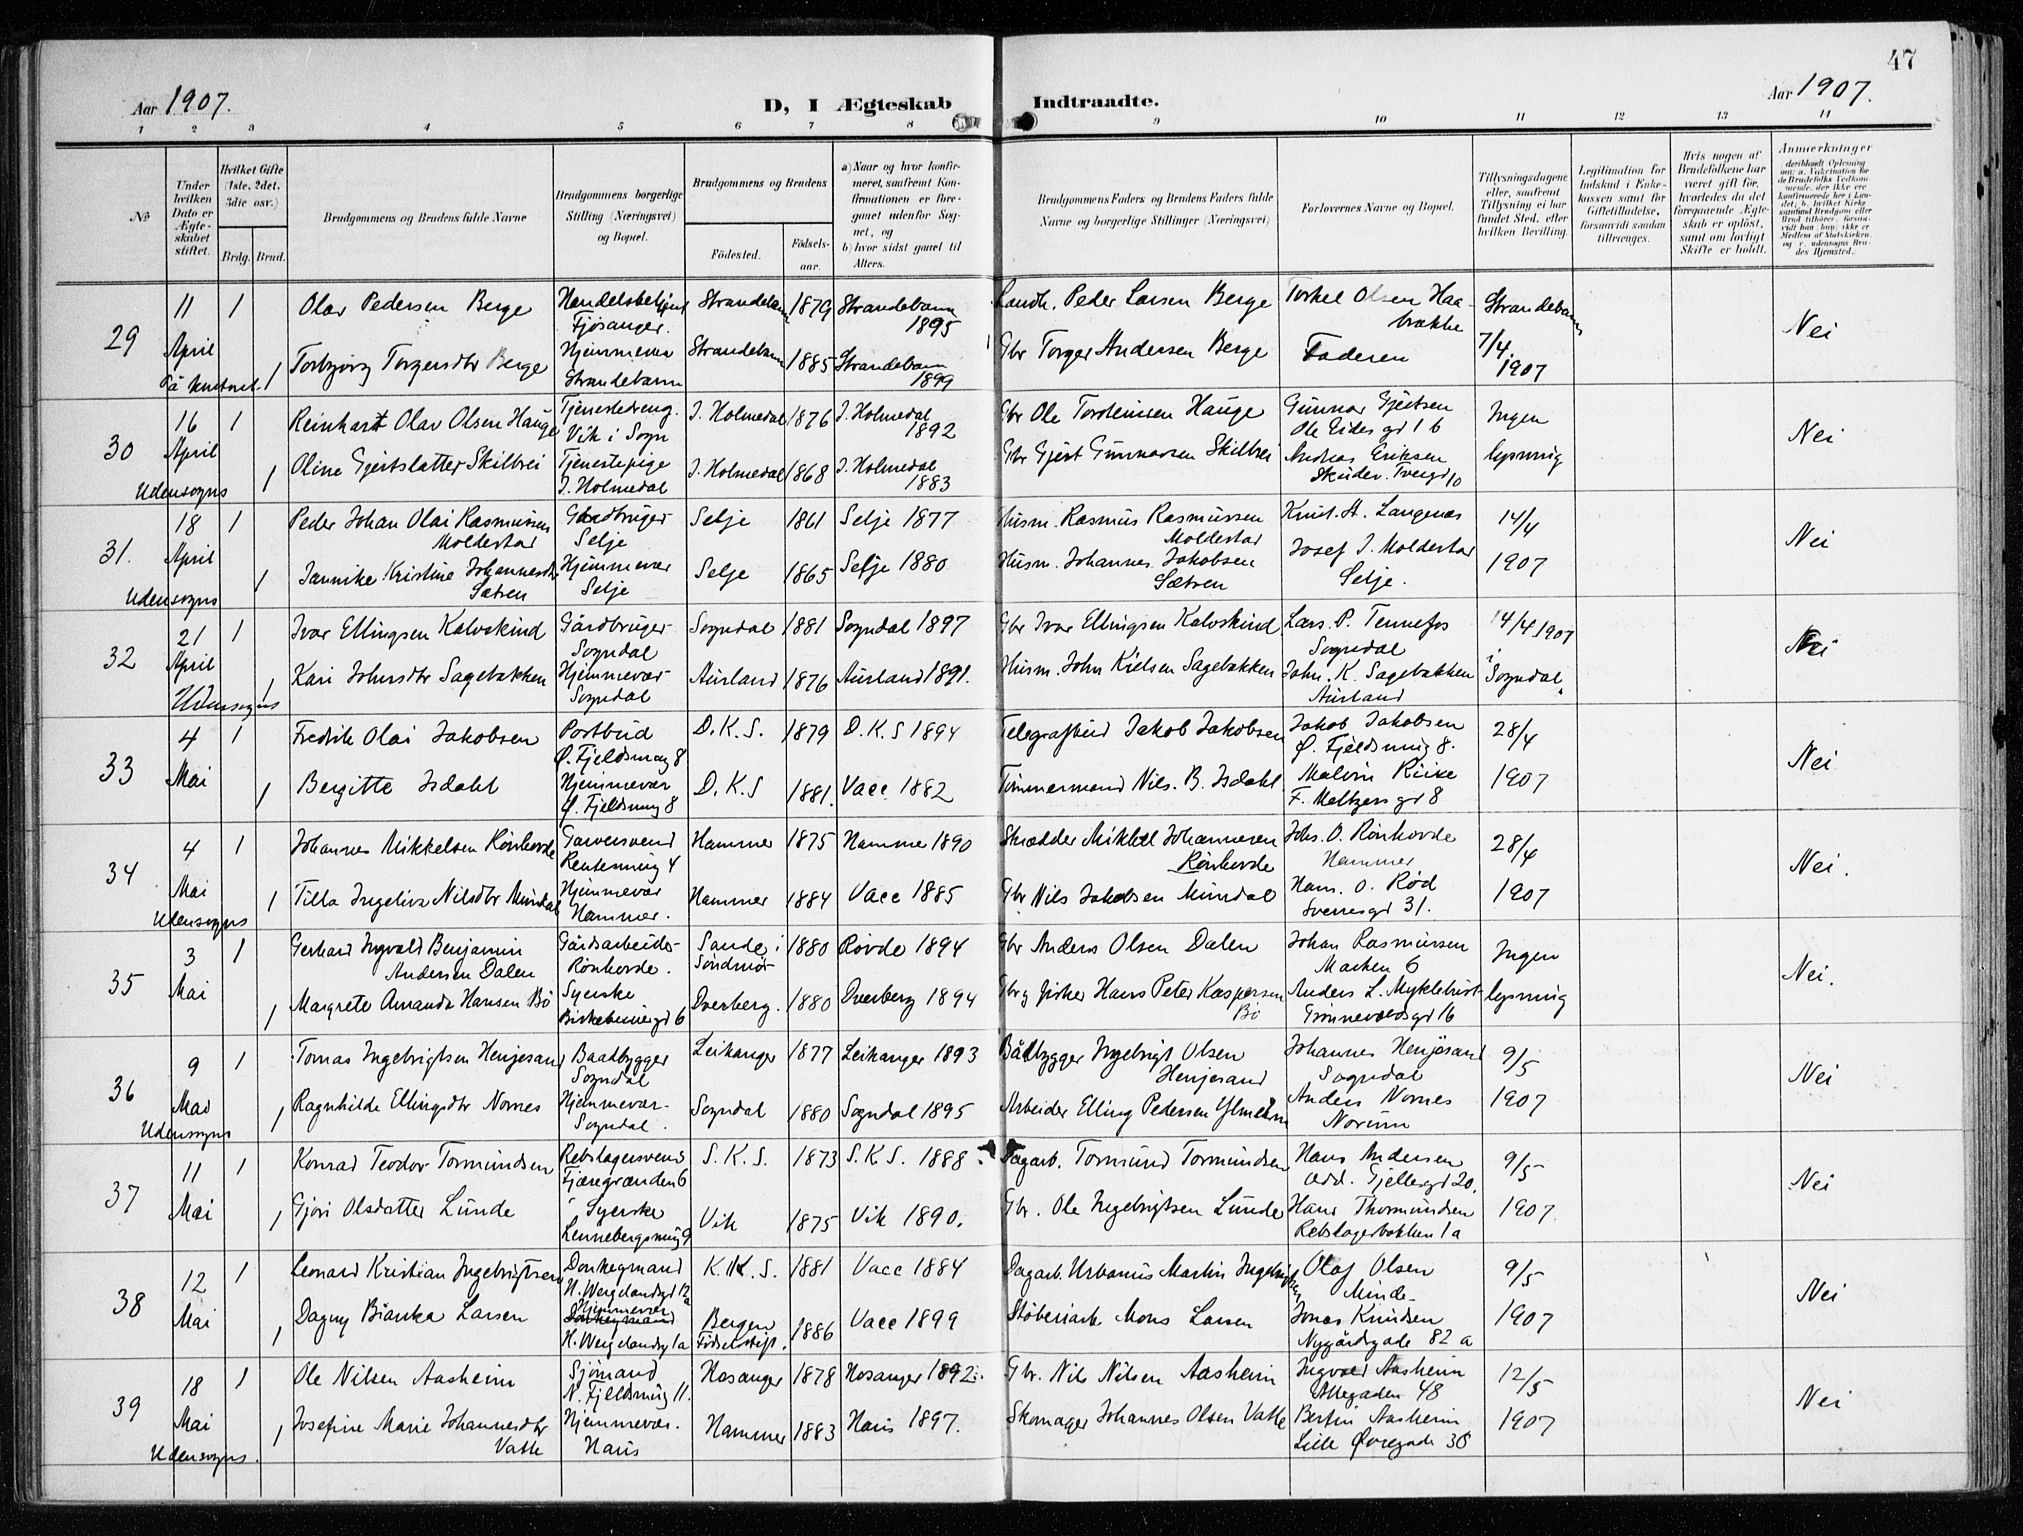 47
Aar 1907.
D, I Ægteskab Indtraadte.
Aar 1907.
1 2 3 4 5 6 7 8 9 10 11 12 13 14
No
Under hvilken Dato er Ægteskabet stiftet.
Hvilket Gifte (1ste, 2det, 3die osv.)
Brdg. Brud.
Brudgommens og Brudens fulde Navne
Brudgommens borgerlige Stilling (Næringsvei) og Bopæl.
Brudgommens og Brudens
Fødested.
Fødselsaar.
a) Naar og hvor konfirmeret, saafremt Konfirmationen er foregaaet udenfor Sognet, og
b) hvor sidst gaaet til Alters.
Brudgommens Faders og Brudens Faders fulde Navne og borgerlige Stillinger (Næringsvei)
Forlovernes Navne og Bopæl.
Tillysningsdagene eller, saafremt Tillysning ei har fundet Sted, efter hvilken Bevilling.
Legitimation for Indskud i Enkekassen samt for Giftetilladelse, forsaavidt saadan tiltrænges.
Hvis nogen af Brudefolkene har været gift før, hvorledes da det foregaaende Ægteskab er opløst, samt om lovligt Skifte er holdt.
Anmærkninger
29 11 April 1 Olav Pedersen Berge Handelsbetjent Fjøsanger. Strandebarm 1879 Strandebarm 1895 Landh. Peder Larsen Berge Torkel Olsen Haabrække Strandebarm 7/4 1907 Nei
1 Torbjørg Torgersdtr Berge Hjemmevær Strandebarm Strandebarm 1885 Strandebarm 1899 Gbr Torger Andersen Berge Faderen
30 16 April Udensogns 1 Reinhart Olav Olsen Hauge Tjenestedreng. Vik i Sogn I. Holmedal 1876 I. Holmedal 1892 Gbr Ole Torsteinsen Hauge Gunnar Gjertsen Ole Eides gd 16 Ingen lysning Nei
1 Oline Gjertsdatter Skilbrei Tjenestepige I. Holmedal I. Holmedal 1868 I. Holmedal 1883 Gbr Gjert Gunnarsen Skilbrei Andreas Eriksen Skuder. Tvergd 10
31. 18 April Udensogns 1 Peder Johan Olai Rasmussen Moldestad Gårdbruger Selje Selje 1861 Selje 1877 Husm. Rasmus Rasmussen Moldestad Knut. A. Langenes 14/4 1907 Nei
1 Jannike Kristine Johannesdtr Sætren Hjemmevær Selje Selje 1865 Selje 1880 Husm. Johannes Jakobsen Sætren Josef J. Moldestad Selje.
32 21 April Udensogns 1 Ivar Ellingsen Kalvskind Gårdbruger Sogndal Sogndal 1881 Sogndal 1897 Gbr Ivar Ellingsen Kalvskind Lars. P. Tennefos Sogndal 14/4 1907 i Sogndal Nei
1 Kari Johnsdtr Sagebakken Hjemmevær Sogndal Aurland 1876 Aurland 1891. Husm. John Kielsen Sagebakken John. K. Sagebakken Aurland
33 4 Mai 1 Fredrik Olai Jakobsen Postbud Ø. Fjeldsmug 8 D.K.S. 1879 D.K.S 1894 Telegrafbud Jakob Jakobsen Jakob Jakobsen Ø. Fjeldsmug 8. 28/4 1907 Nei
1 Bergitte Isdahl Hjemmevær Ø. Fjeldsmug 8 D.K.S 1881. Vacc 1882 Tømmermand Nils. B. Isdahl Malvin Riise F. Meltzers gd 8
34 4 Mai Udensogns 1 Johannes Mikkelsen Rønhovde Garversvend Hammer 1875 Hammer 1890 Skrædder Mikkel Johannesen Rønhovde Johs. O. Rønhovde Hammer 28/4 1907 Nei.
1 Tilla Ingeliva Nilsdtr Mundal Hjemmevær Hammer. Hammer 1884 Vacc 1885 Gbr Nils Jakobsen Mundal Hans. O. Rød Sverresgd 31.
35 3 Mai 1 Gerhard Ingvald Benjamin Andersen Dalen Gårdsarbeider Rønhovde. Sande i Søndmør 1880 Rovde 1894 Gbr Anders Olsen Dalen Johan Rasmussen Marken 6 Ingen lysning Nei.
1 Margrete Amanda Hansen Bø Syerske Birkebeinergd 6 Dverberg. 1880 Dverberg 1894 Gbr og fisker Hans Peter Kaspersen Bø Anders L. Myklebust Grønnevoldsgd 16
36 9 Mai Udensogns 1 Tomas Ingebrigtsen Henjesand Baadbygger Sogndal Leikanger 1877 Leikanger 1893 Båtbygger Ingebrigt Olsen Henjesand Johannes Henjesand Sogndal 9/5 1907 Nei
1 Ragnhilde Ellingsdtr Nornes Hjemmevær. Sogndal. Sogndal 1880 Sogndal 1895 Arbeider Elling Pedersen Anders Nornes Norum
37 11 Mai 1 Konrad Teodor Tormundsen Rebslagersvend Fjæregrænden 6 S.K.S. 1873 S.K.S. 1888 Dagarb. Tormund Tormundsen Hans Andersen Add. Gjellesgd 20. 9/5 1907. Nei
1 Gjøri Olsdatter Lunde Syerske Lennebergsmug 9 Vik 1875 Vik 1890. Gbr. Ole Ingebrigtsen Lunde Hans Thormundsen Rebslagerbakken 1a
38 12 Mai 1 Leonard Kristian Ingebrigtsen Donkeymand H. Wergelandsgd 12a K.K.S. 1881 Vacc 1884 Dagarb. Urbanus Martin Ingebrigtsen Olaf Olsen Minde 9/5 1907 Nei
1 Dagny Bianka Larsen Hjemmevær Donkeymand H. Wergelandsgd 1a Bergen Fødselsstift. 1886 Vacc 1899 Støberiarb Mons Larsen Jonas Knudsen Nygårdsgade 82 a
39 18 Mai Udensogns. 1 Ole Nilsen Aasheim Sjømand N. Fjeldsmug 11. Hosanger 1878 Hosanger 1892. Gbr. Nils Nilsen Aasheim Ingvald Aasheim Allegaden 48 12/5 1907 Nei
1 Josefine Marie Johannesdtr Vatle Hjemmevær. Haus Hammer 1883 Haus 1897. Skomager Johannes Olsen Vatle Bertin Aasheim Lille Øvregade 38